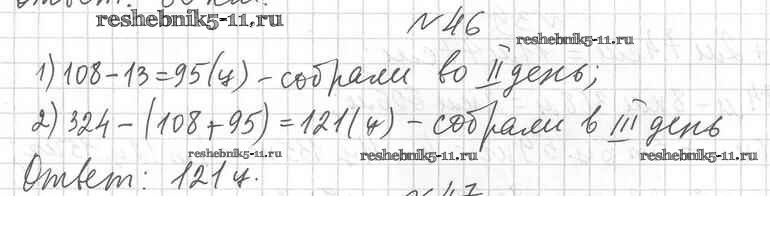 Ответ:
reshebnik5-11.ru
№46
reshebnik5-11.ru
1) 108-13=95(ц) - собрали во II день;
2) 324-(108+95)=121(ц) - собрали в III день
reshebnik5-11.ru
reshebnik5-11.ru
reshebnik5-11.ru
Ответ: 121ц.
№47